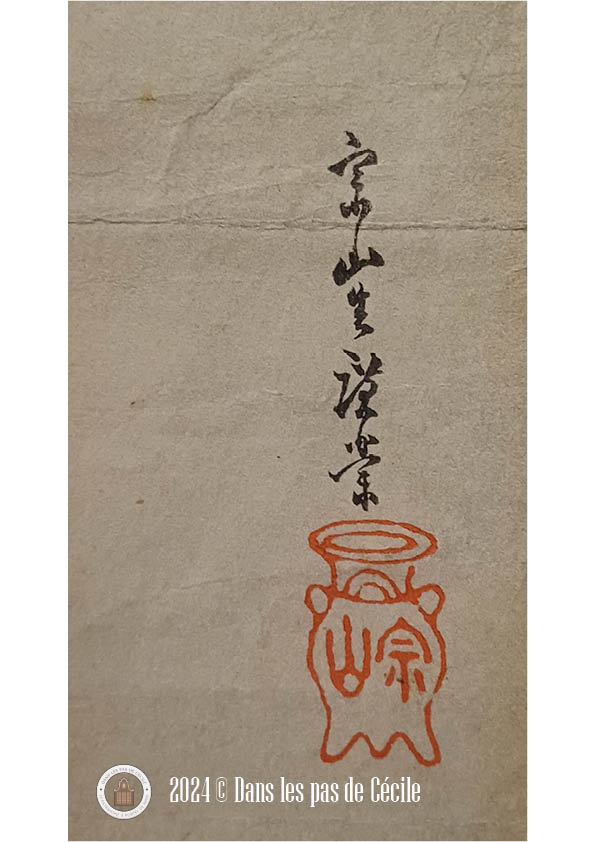 宗山生謹
宗山
2024 © Dans les pas de Cécile